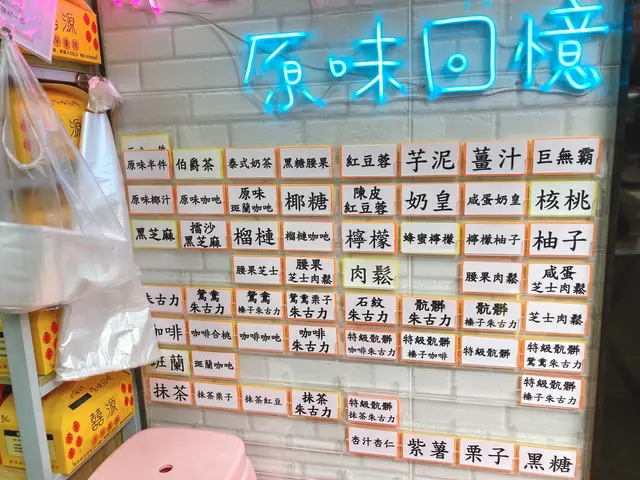 原味回憶
原味半件 伯爵茶 泰式奶茶 黑糖腰果 紅豆蓉 芋泥 薑汁 巨無霸
原味椰汁 原味咖吔 原味 椰糖 陳皮 奶皇 咸蛋奶皇 核桃
斑蘭咖吔 紅豆蓉
黑芝麻 擂沙 榴槤 榴槤咖吔 檸檬 蜂蜜檸檬 檸檬柚子 柚子
黑芝麻
腰果芝士 腰果 肉鬆 腰果肉鬆 咸蛋
芝士肉鬆 芝士肉鬆
朱古力 鴛鴦 鴛鴦 鴛鴦栗子 石紋 骷髏 骷髏 芝士肉鬆
朱古力 榛子朱古力 朱古力 朱古力 朱古力 榛子朱古力
咖啡 咖啡合桃 咖啡咖吔 咖啡 特級骷髏 特級骷髏 特級骷髏 特級骷髏
朱古力 咖啡朱古力 榛子咖啡 鴛鴦朱古力
斑蘭 斑蘭咖吔 特級骷髏
榛子朱古力
抹茶 抹茶栗子 抹茶紅豆 抹茶 特級骷髏
朱古力 抹茶朱古力
杏汁杏仁 紫薯 栗子 黑糖
囍源
囍源